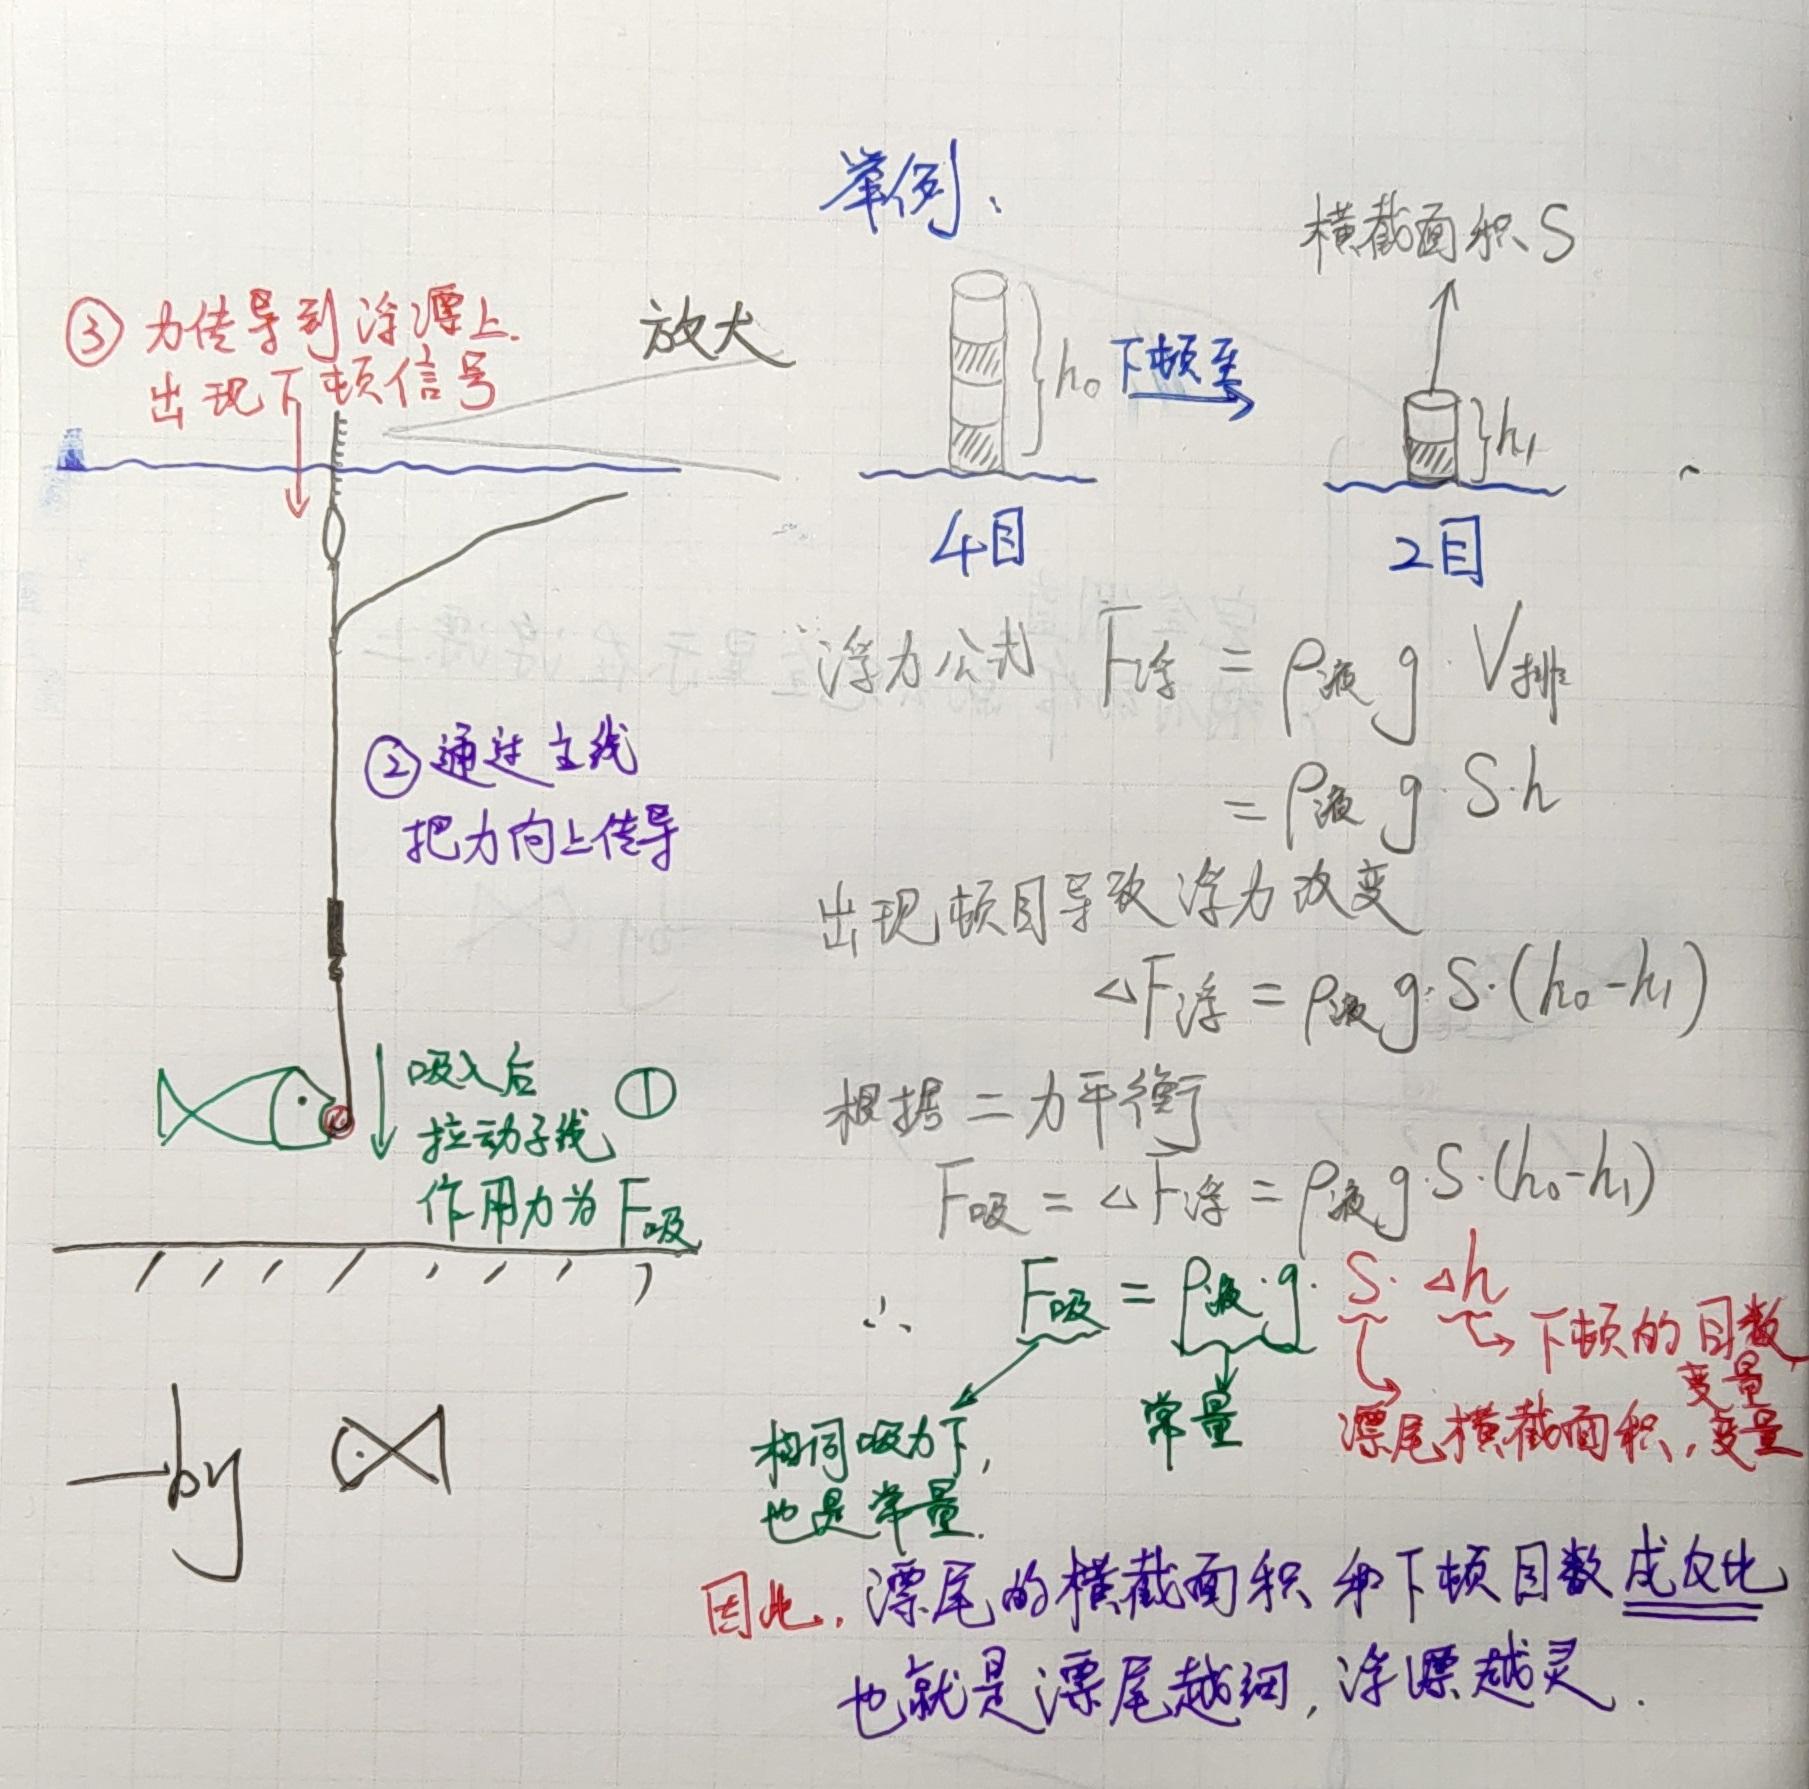 举例、
横截面积S
③力传导到浮漂上.
出现下顿信号
放大
h₀
下顿至
h₁
4目
2目
浮力公式 F浮 = ρ液 g · V排
= ρ液 g · S·h
②通过主线
把力向上传导
出现顿目导致浮力改变
△F浮 = ρ液 g·S·(h₀-h₁)
吸入后 ①
拉动子线
作用力为F吸
根据二力平衡
F吸 = △F浮 = ρ液 g·S·(h₀-h₁)
∴ F吸 = ρ液·g· S· △h
下顿的目数
变量
常量
漂尾横截面积,变量
相同吸力下,
也是常量.
—by
因此,漂尾的横截面积和下顿目数成反比
也就是漂尾越细,浮漂越灵.